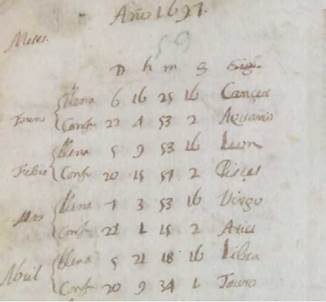 Año 1697.
59
Meses.
D h m S Sig.
Enero Llena 6 16 25 16 Cancer
Conj. 22 4 53 2 Aquario
Febre Llena 5 9 53 16 Leon
Conf. 20 15 51 2 Piscis
Mar Llena 7 3 53 16 Virgo
Conf. 21 1 15 2 Aries
Abril Llena 5 21 18 16 Libra
Conf. 20 9 34 1 Tauro